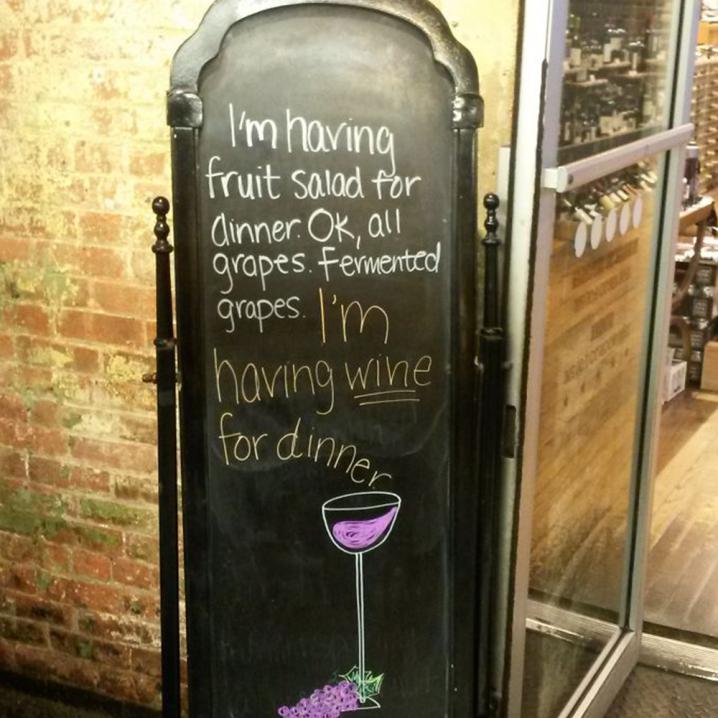 I'm having
fruit salad for
dinner. OK, all
grapes. Fermented
grapes. I'm
having wine
for dinner.